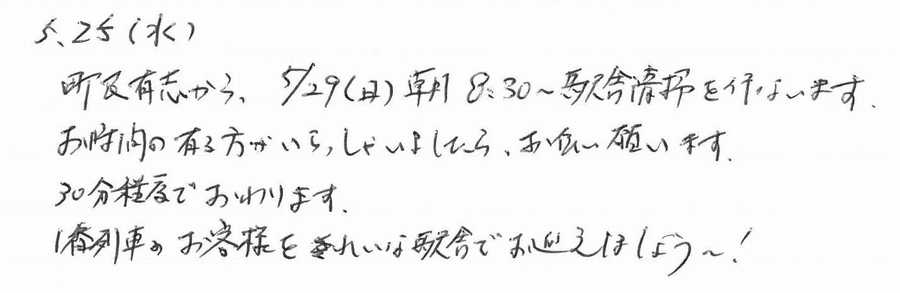 5.25(水)
町民有志から、5/29(日)朝8:30~駅舎清掃を行ないます.
お時間の有る方がいらっしゃいましたら、お伝い願います.
30分程度でおわります.
1番列車のお客様をきれいな駅舎でお迎えしましょう~!